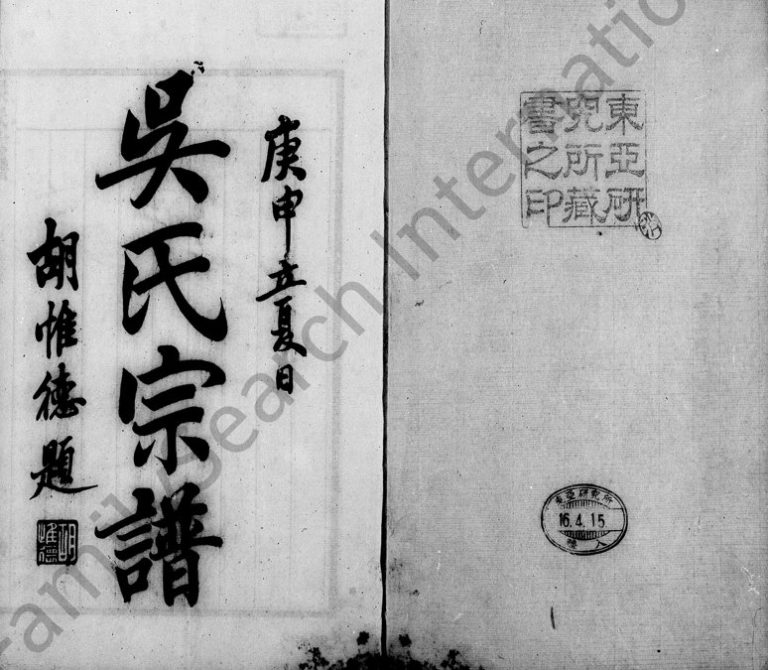 東亞研
究所藏
書之印
東亞研究所
16.4.15
購入
庚申立夏日
吳氏宗譜
胡惟德題
胡惟德
FamilySearch International